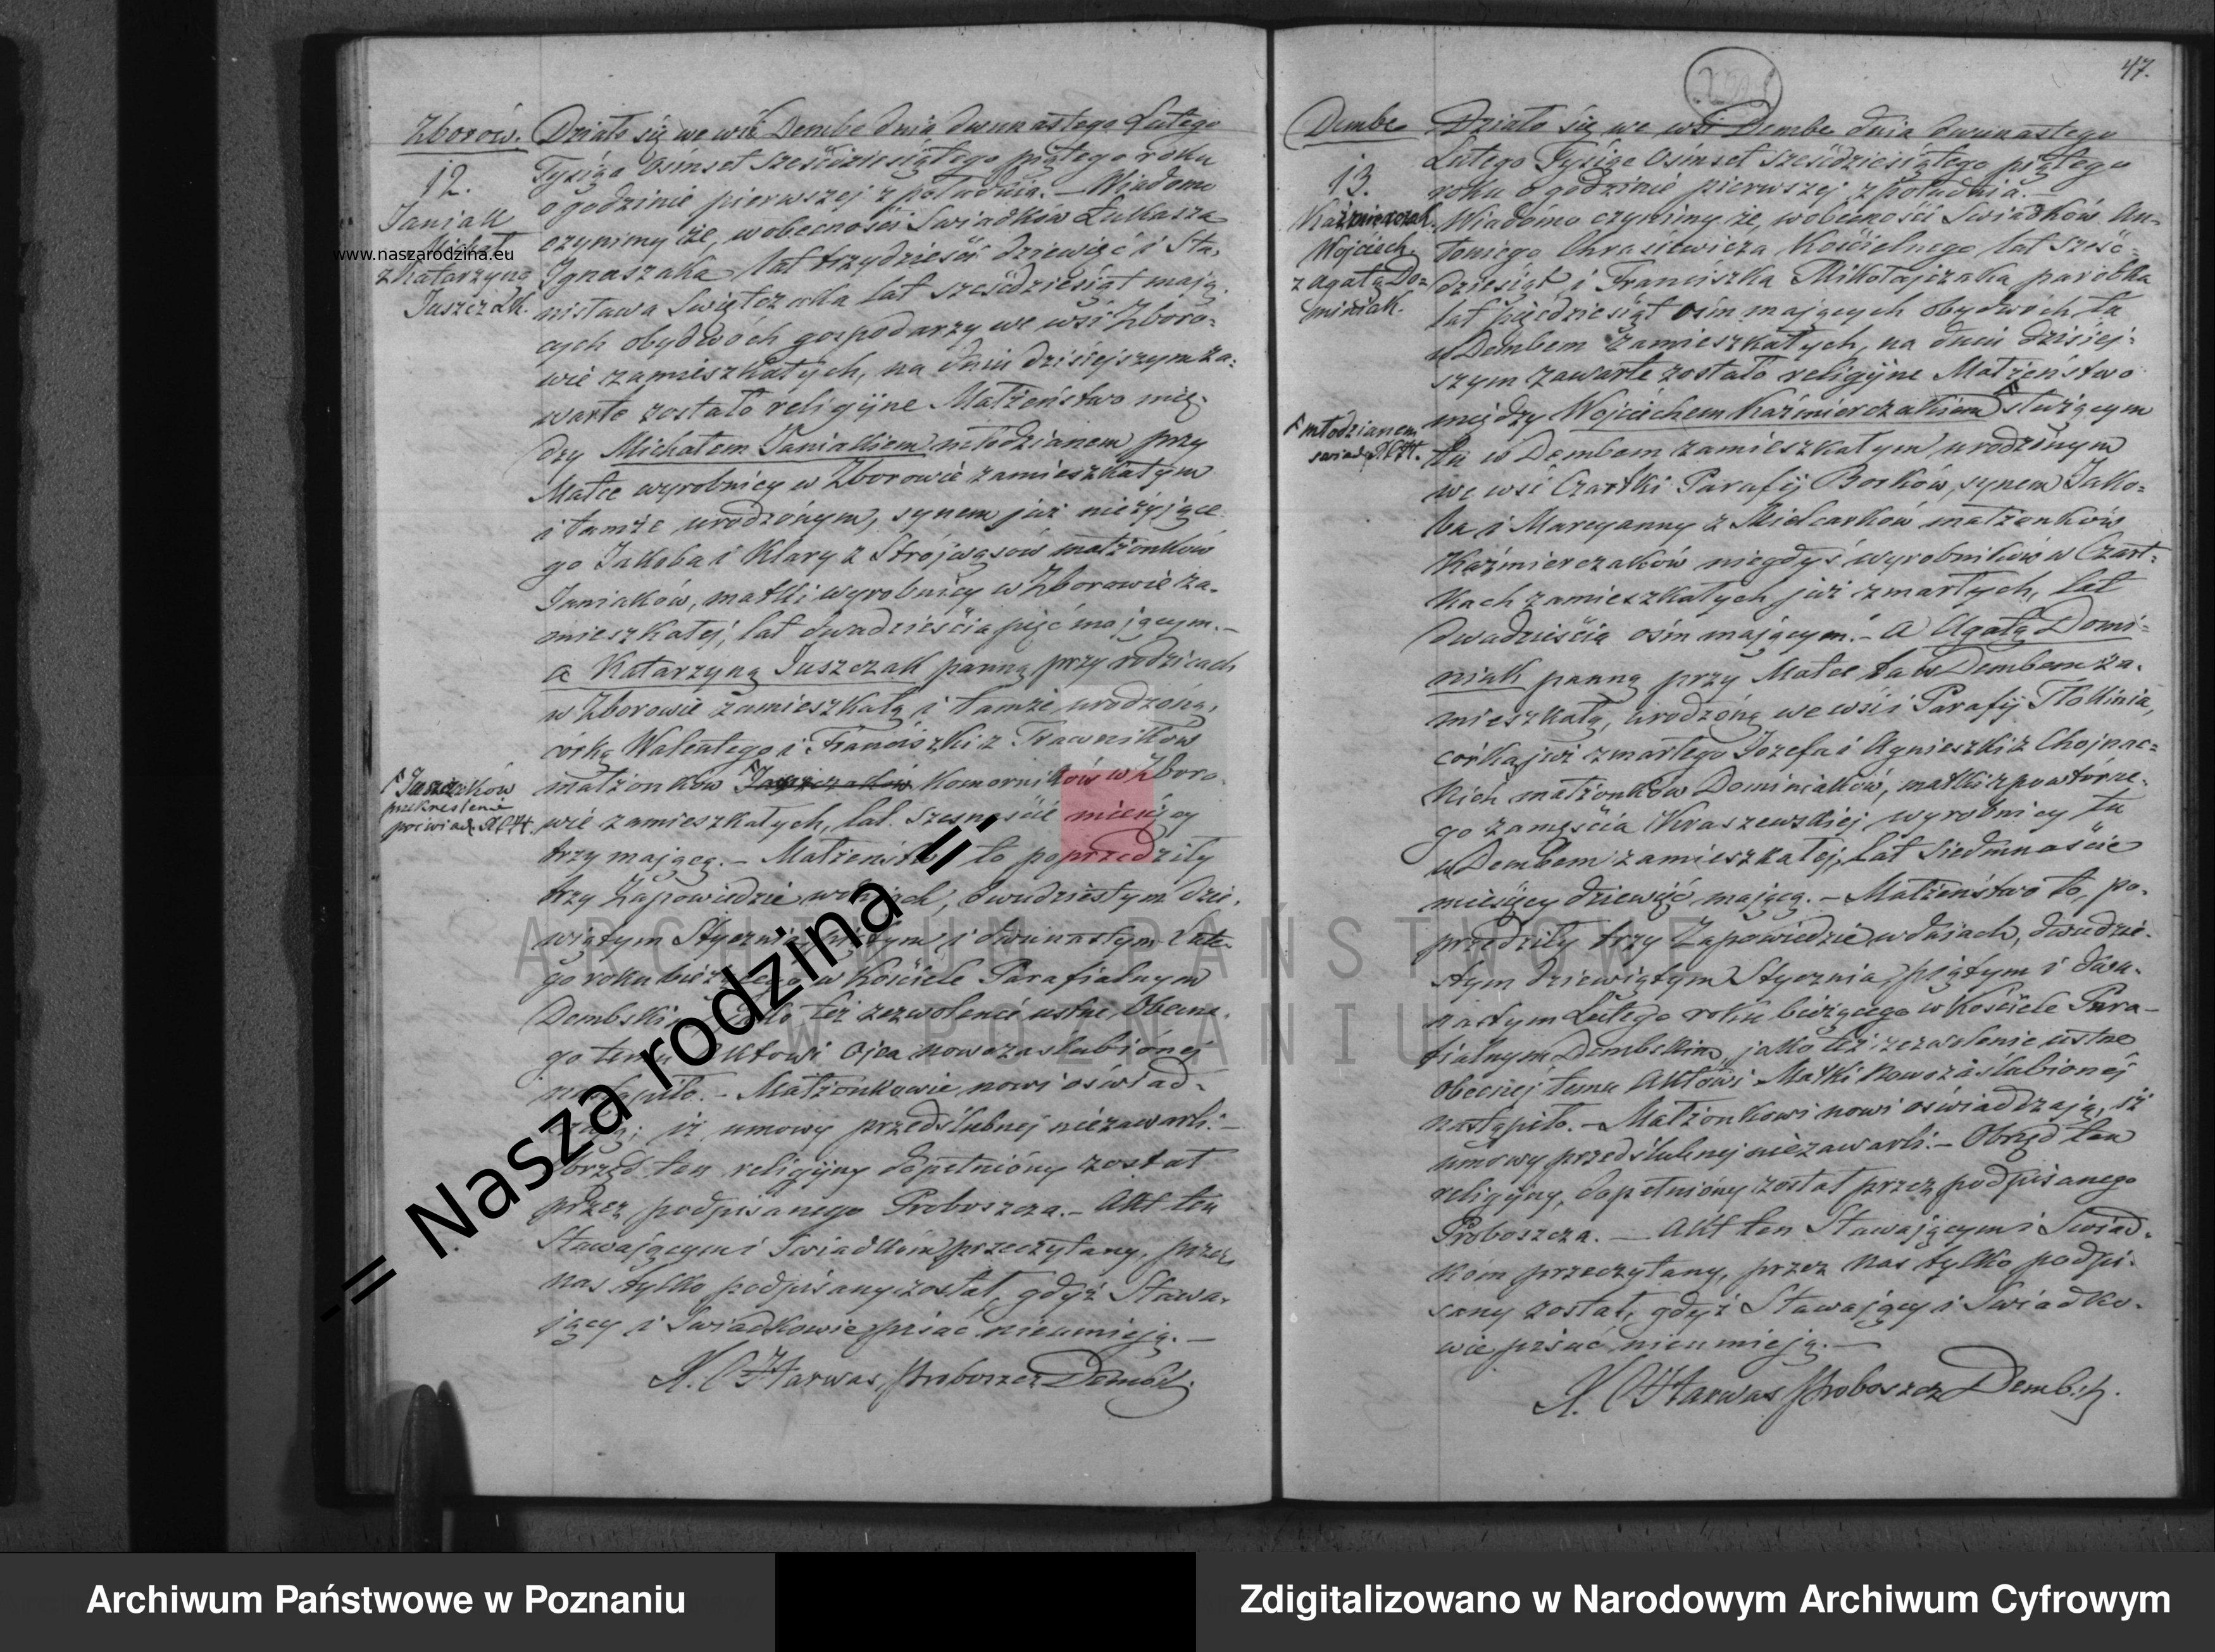 Zborów.
12.
Janiak
Michał
z Katarzyną
Juszczak.
Działo się we wsi Dembe dnia dwunastego Lutego
Tysiąc Osimset sześćdziesiątego piątego roku
o godzinie pierwszej z południa. — Wiadomo
czynimy że, w obecności Swiadków Łukasza
Ignaszaka lat trzydzieści dziewięć i Sta-
nisława Swiętczaka lat sześćdziesiąt mają-
cych obydwóch gospodarzy we wsi Zboro-
wie zamieszkałych, na dniu dzisiejszym za-
warte zostało religijne Małżeństwo mię-
dzy Michałem Janiakiem młodzianem przy
Matce wyrobnicy w Zborowie zamieszkałym
i tamże urodzonym, synem już nieżyjące-
go Jakóba i Klary z Strójwąsów małżonków
Janiaków, matki wyrobnicy w Zborowie za-
mieszkałej, lat dwadzieścia pięć mającym. —
a Katarzyną Juszczak panną przy rodzicach
w Zborowie zamieszkałą i tamże urodzoną,
córką Walentego i Franciszki z Trawników
małżonków Komorników w Zboro-
wie zamieszkałych, lat szesnaście miesięcy
trzy mającą. — Małżeństwo to poprzedziły
trzy Zapowiedzie w dniach, dwudziestym dzie-
wiątym Stycznia, piątym i dwunastym Lute-
go roku bieżącego w Kościele Parafialnym
Dembskim, jako też zezwolenie ustne, Obecne-
go temu Aktowi Ojca nowozaślubionéj
nastąpiło. — Małżonkowie nowi oświad-
czają; iż umowy przedślubnej niezawarli. —
Obrzęd ten religijny dopełniony został
przez podpisanego Proboszcza. — Akt ten
Stawającym i Swiadkom przeczytany, przez
nas tylko podpisany został, gdyż Stawa-
jący i Swiadkowie pisać nieumieją. —
X. C Harwas, Proboszcz Dembski
Juszczaków
przekreślenie
poświad. X C H.
www.naszarodzina.eu
-= Nasza rodzina =-
47.
Dembe
13.
Kaźmierczak
Wojciech
z Agatą Do-
miniak.
Działo się we wsi Dembe dnia dwunastego
Lutego Tysiąc Osimset sześćdziesiątego piątego
roku o godzinie pierwszej z południa. —
Wiadomo czynimy że, w obecności Swiadków An-
toniego Chrasiewicza Kościelnego lat sześć-
dziesiąt i Franciszka Mikołajczaka parobka
lat pięćdziesiąt osim mających obydwóch tu
w Dembem zamieszkałych, na dniu dzisiej-
szym zawarte zostało religijne Małżeństwo
między Wojciechem Kaźmierczakiem służącym
tu w Dembem zamieszkałym urodzonym
we wsi Czartki Parafij Borków, synem Jakó-
ba i Maryanny z Mielcarków małżonków
Kaźmierczaków niegdyś wyrobników w Czart-
kach zamieszkałych już zmarłych, lat
dwadzieścia osim mającym. — a Agatą Domi-
niak panną przy Matce tu w Dembem za-
mieszkałą, urodzoną we wsi i Parafij Tłokinia,
córką już zmarłego Józefa i Agnieszki z Chojnac-
kich małżonków Dominiaków, matki z powtórne-
go zamęścia Kraszewskiej wyrobnicy tu
w Dembem zamieszkałej, lat siedmnaście
miesięcy dziewięć, mającą. — Małżeństwo to, po-
przedziły trzy Zapowiedzie w dniach, dwudzie-
stym dziewiątym Stycznia, piątym i dwu-
nastym Lutego roku bieżącego w Kościele Para-
fialnym Dembskim, jako też zezwolenie ustne
obecnej temu Aktowi Matki nowozaślubionéj
nastąpiło. — Małżonkowi nowi oświadczają, iż
umowy przedślubnej niezawarli. — Obrzęd ten
religijny, dopełniony został przez podpisanego
Proboszcza. — Akt ten Stawającym i Swiad-
kom przeczytany, przez nas tylko podpi-
sany został, gdyż Stawający i Swiadko-
wie pisać nieumieją. —
X. C Harwas Proboszcz Dembski.
młodzianem
świad. X C H.
ARCHIWUM PAŃSTWOWE
W POZNANIU
Archiwum Państwowe w Poznaniu
Zdigitalizowano w Narodowym Archiwum Cyfrowym